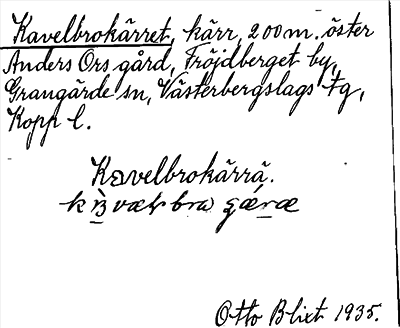 Kavelbrokärret, kärr, 200 m. öster
Anders Ors gård, Fröjdberget by,
Grangärde sn, Västerbergslags tg,
Kopp l.
Kavelbrokärrä.
Otto Blixt 1935.